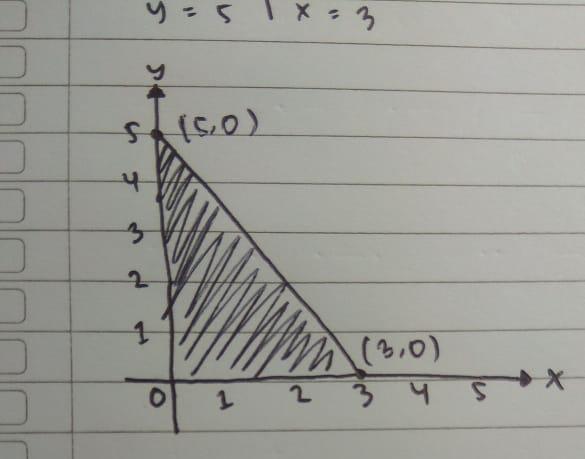 y = 5 | x = 3
y
5 (5,0)
4
3
2
1 (3,0)
0 1 2 3 4 5 x